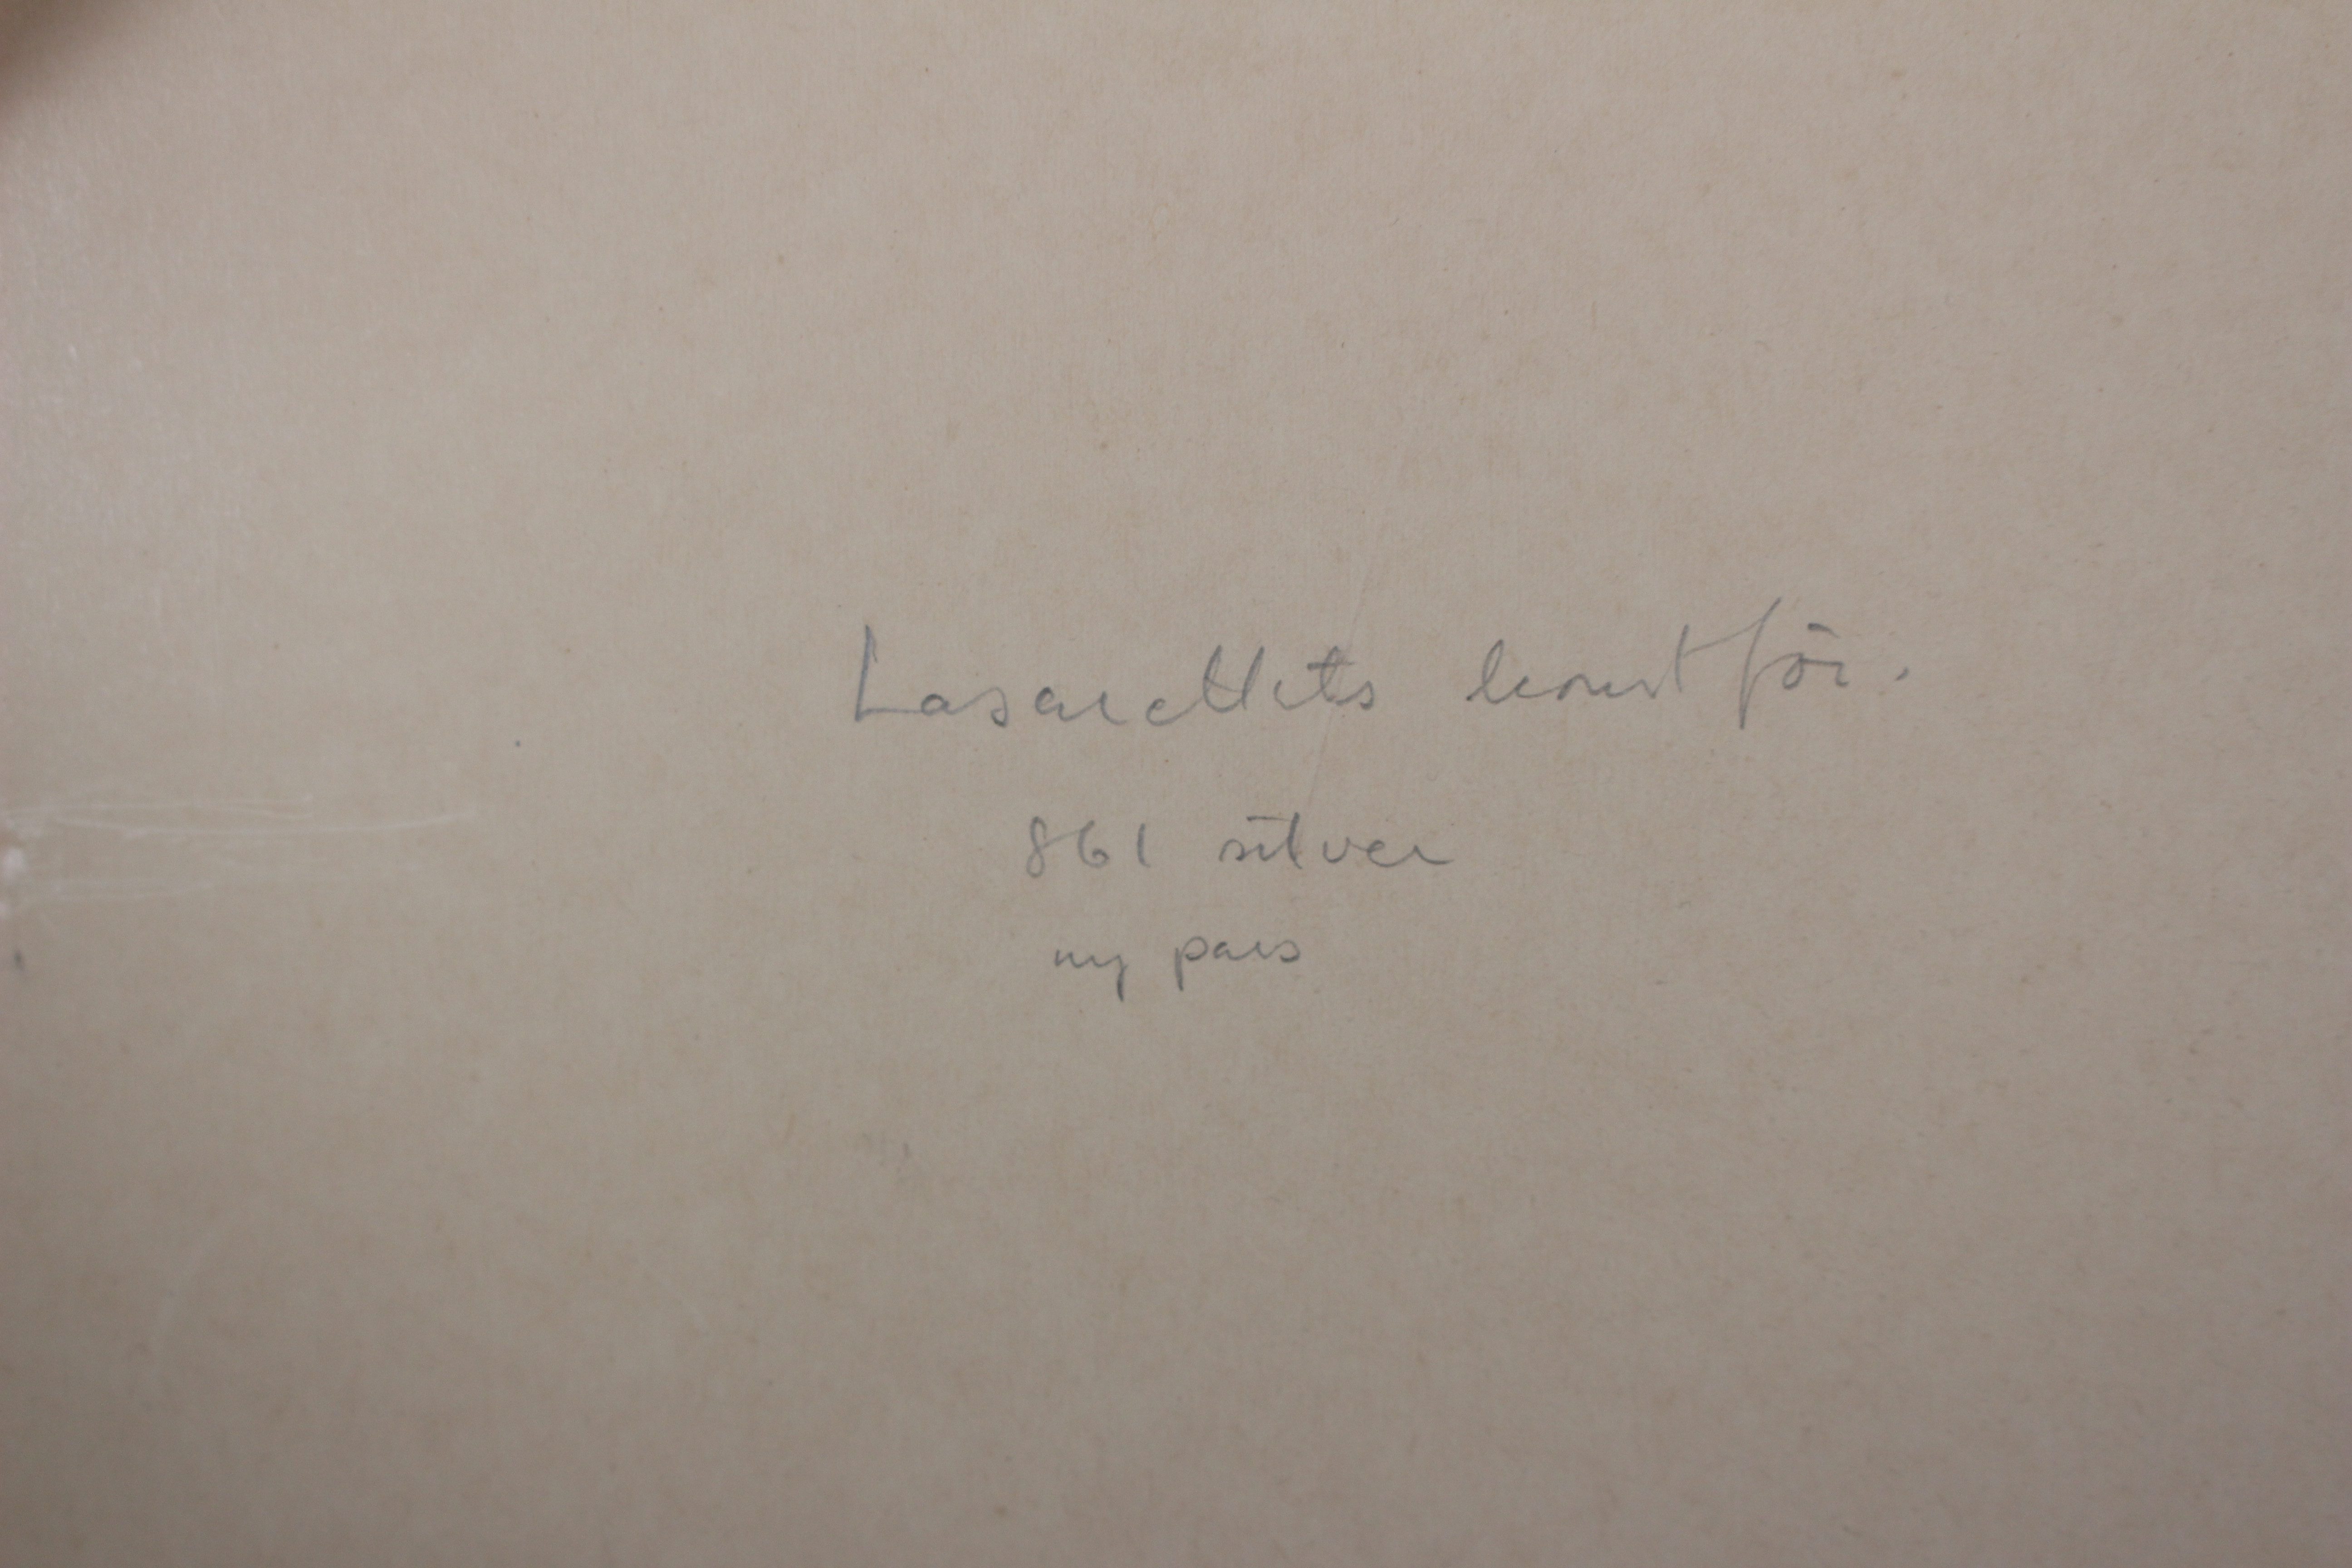 Lasarettets konstför.
861 silver
ny pars